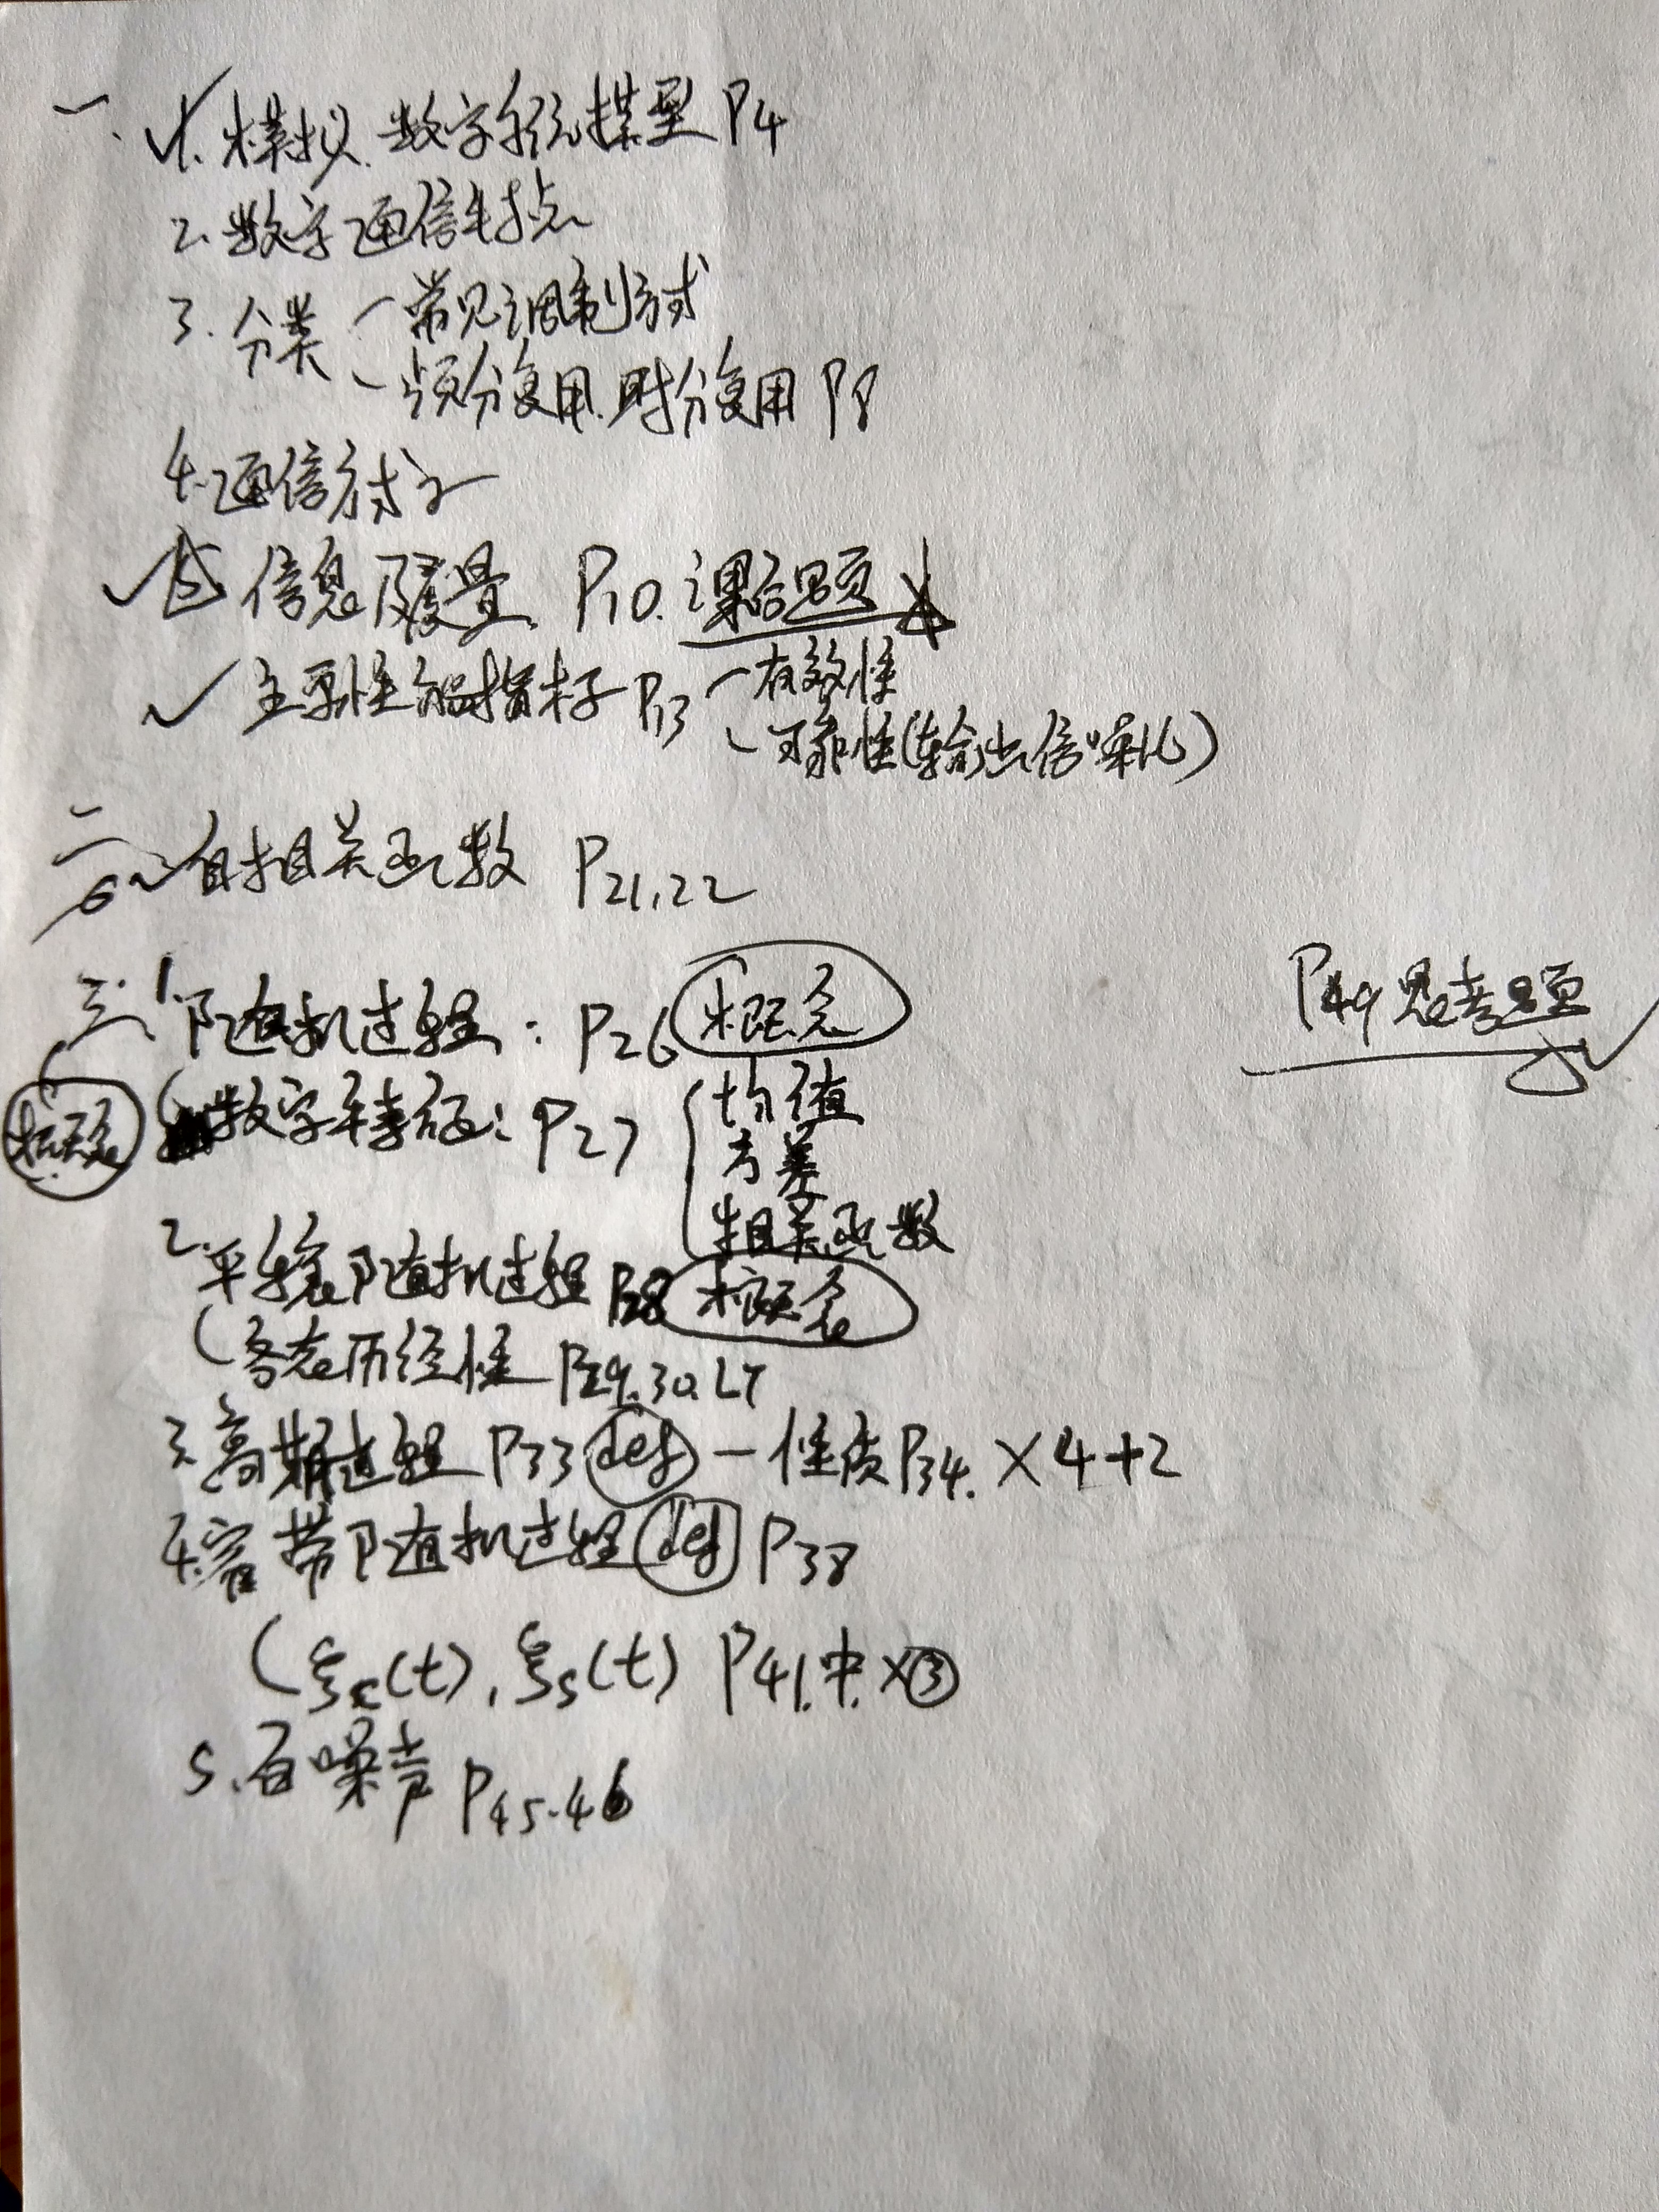 一、✓1. 模拟.数字系统模型 P4
2. 数字通信特点
3. 分类 - 常见调制方式
- 频分复用.时分复用 P8
4. 通信方式
✓5 信息及度量. P10. 课后题
✓ 主要性能指标 P13 - 有效性
- 可靠性(输出信噪比)
二、
6 ✓ 自相关函数 P21,22
三、1. 随机过程: P26 概念
P49 思考题 ✓
概念 (数字特征: P27 { 均值
方差
相关函数
2. 平稳随机过程 P28 概念
(各态历经性 P29.30.
3. 高斯过程 P33 def - 性质 P34. ×4+2
4. 窄带随机过程 def P38
(ξc(t), ξs(t) P41.中.×③
5. 白噪声 P45.46